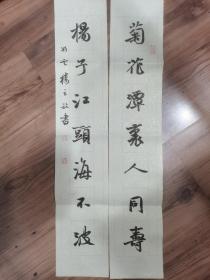 菊花潭裏人同壽
楊子江頭海不波